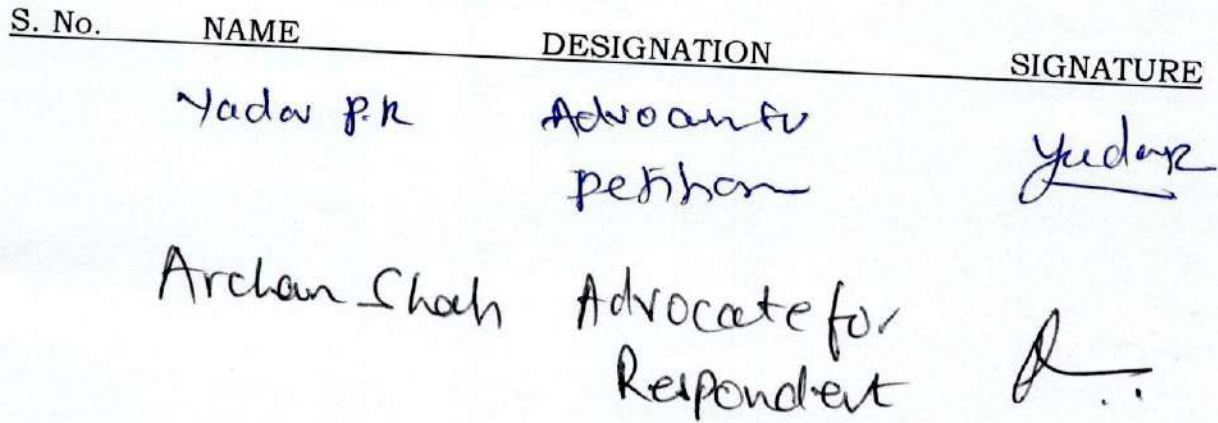 S. No. NAME DESIGNATION SIGNATURE
Yadav P.R Advocate for
petition
Archan Shah Advocate for
Respondent